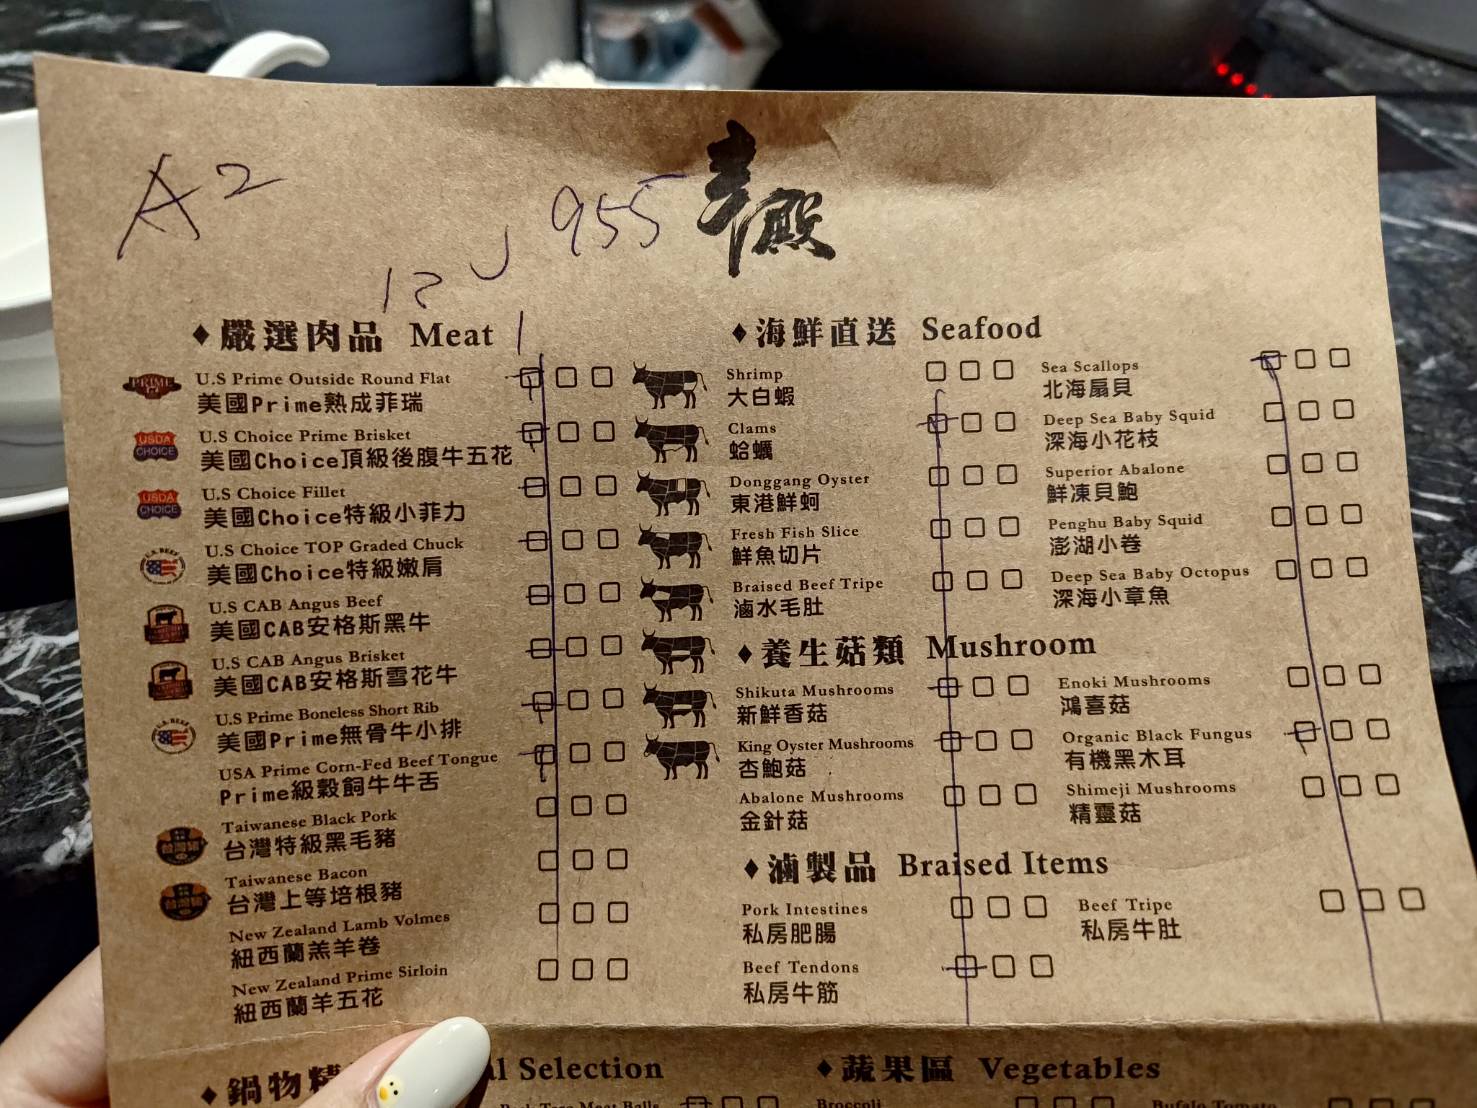 A2
955
12
1
嚴選肉品 Meat
PRIME
U.S Prime Outside Round Flat
美國Prime熟成菲瑞
USDA CHOICE
U.S Choice Prime Brisket
美國Choice頂級後腹牛五花
USDA CHOICE
U.S Choice Fillet
美國Choice特級小菲力
U.S. BEEF
U.S Choice TOP Graded Chuck
美國Choice特級嫩肩
U.S CAB Angus Beef
美國CAB安格斯黑牛
U.S CAB Angus Brisket
美國CAB安格斯雪花牛
U.S. BEEF
U.S Prime Boneless Short Rib
美國Prime無骨牛小排
USA Prime Corn-Fed Beef Tongue
Prime級穀飼牛牛舌
Taiwanese Black Pork
台灣特級黑毛豬
Taiwanese Bacon
台灣上等培根豬
New Zealand Lamb Volmes
紐西蘭羔羊卷
New Zealand Prime Sirloin
紐西蘭羊五花
海鮮直送 Seafood
Shrimp
大白蝦
Clams
蛤蠣
Donggang Oyster
東港鮮蚵
Fresh Fish Slice
鮮魚切片
Braised Beef Tripe
滷水毛肚
Sea Scallops
北海扇貝
Deep Sea Baby Squid
深海小花枝
Superior Abalone
鮮凍貝鮑
Penghu Baby Squid
澎湖小卷
Deep Sea Baby Octopus
深海小章魚
養生菇類 Mushroom
Shikuta Mushrooms
新鮮香菇
King Oyster Mushrooms
杏鮑菇
Abalone Mushrooms
金針菇
Enoki Mushrooms
鴻喜菇
Organic Black Fungus
有機黑木耳
Shimeji Mushrooms
精靈菇
滷製品 Braised Items
Pork Intestines
私房肥腸
Beef Tendons
私房牛筋
Beef Tripe
私房牛肚
鍋物精 Selection
蔬果區 Vegetables
Broccoli
Bufalo Tomato